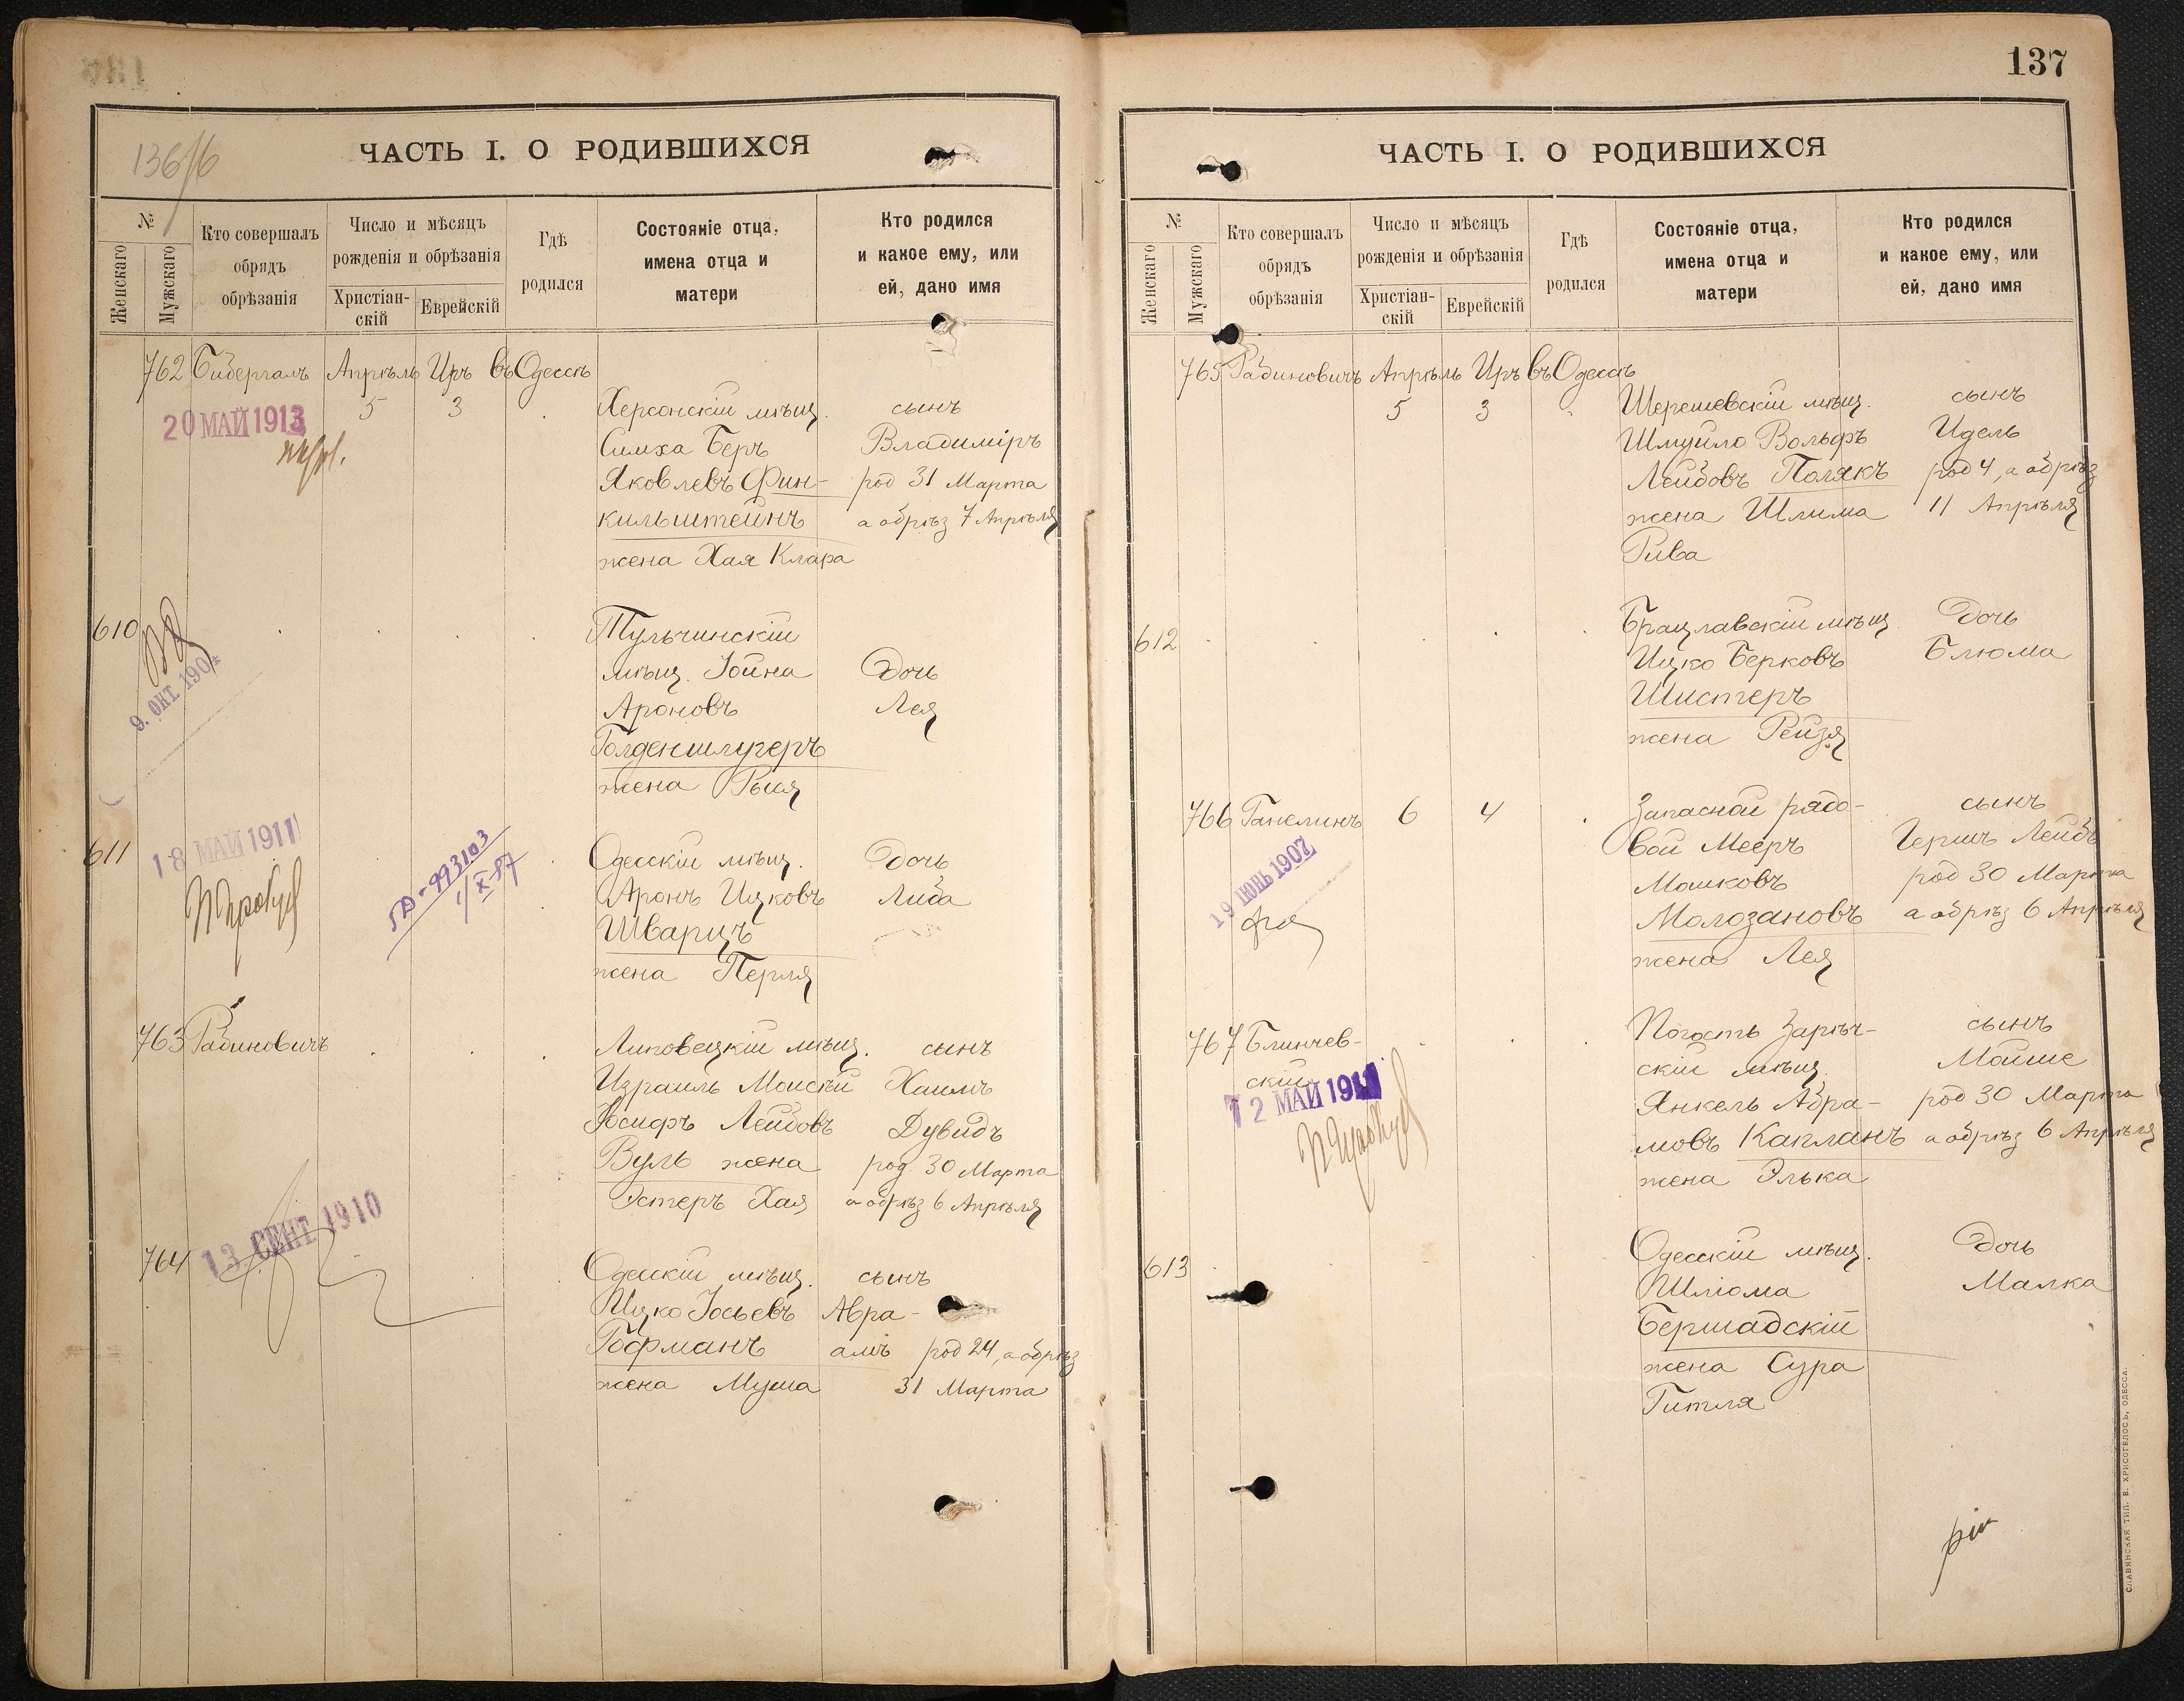 136/б
ЧАСТЬ I. О РОДИВШИХСЯ
№
Женскаго
Мужскаго
Кто совершалъ
обрядъ
обрѣзанія
Число и мѣсяцъ
рожденія и обрѣзанія
Христіан-
скій
Еврейскій
Гдѣ
родился
Состояніе отца,
имена отца и
матери
Кто родился
и какое ему, или
ей, дано имя
762 Бидергалъ Апрѣль Иръ въ Одессѣ
20 МАЙ 1913
5 3 Херсонскій мѣщ. сынъ
Симха Беръ Владиміръ
Яковлевъ Фин- род 31 Марта
кильштейнъ а обрѣз 7 Апрѣля
жена Хая Клара
610 Тульчинскій
мѣщ. Іойна Дочь
Ароновъ Лея
9. ОКТ. 190
Голденшлугеръ
жена Рыся
611 18 МАЙ 1911 Одесскій мѣщ. Дочь
993103
1/X 57
Аронъ Ицковъ Либа
Шварцъ
жена Перля
763 Рабиновичъ Липовецкій мѣщ. сынъ
Израиль Моисѣй Хаимъ
Іосифъ Лейбовъ Дувидъ
Вуль жена род. 30 Марта
Эстеръ Хая а обрѣз 6 Апрѣля
764 13 СЕНТ 1910 Одесскій мѣщ. сынъ
Ицко Іосьевъ Авра-
Гофманъ амъ род 24, а обрѣз
жена Муша 31 Марта
137
ЧАСТЬ I. О РОДИВШИХСЯ
№
Женскаго
Мужскаго
Кто совершалъ
обрядъ
обрѣзанія
Число и мѣсяцъ
рожденія и обрѣзанія
Христіан-
скій
Еврейскій
Гдѣ
родился
Состояніе отца,
имена отца и
матери
Кто родился
и какое ему, или
ей, дано имя
765 Рабиновичъ Апрѣль Иръ въ Одессѣ
5 3 Шерешевскій мѣщ. сынъ
Шмуйло Вольфъ Идель
Лейбовъ Полякъ род 4, а обрѣз
жена Шлима 11 Апрѣля
Рива
612 Брацлавскій мѣщ. Дочь
Ицко Берковъ Блюма
Шистеръ
жена Рейзя
766 Ганелинъ 6 4 Запасной рядо- сынъ
вой Мееръ Гершъ Лейбъ
19 ІЮНЬ 1907
Мошковъ род 30 Марта
Молозановъ а обрѣз 6 Апрѣля
жена Лея
767 Блинчев- Погость Зарѣч- сынъ
скій скій мѣщ. Мойше
2 МАЙ 1911
Янкель Абра- род 30 Марта
мовъ Капланъ а обрѣз 6 Апрѣля
жена Элька
613 Одесскій мѣщ. Дочь
Шлiома Малка
Бершадскій
жена Сура
Гитля
СЛАВЯНСКАЯ ТИП. Е. ХРИСОГЕЛОСЪ, ОДЕССА.